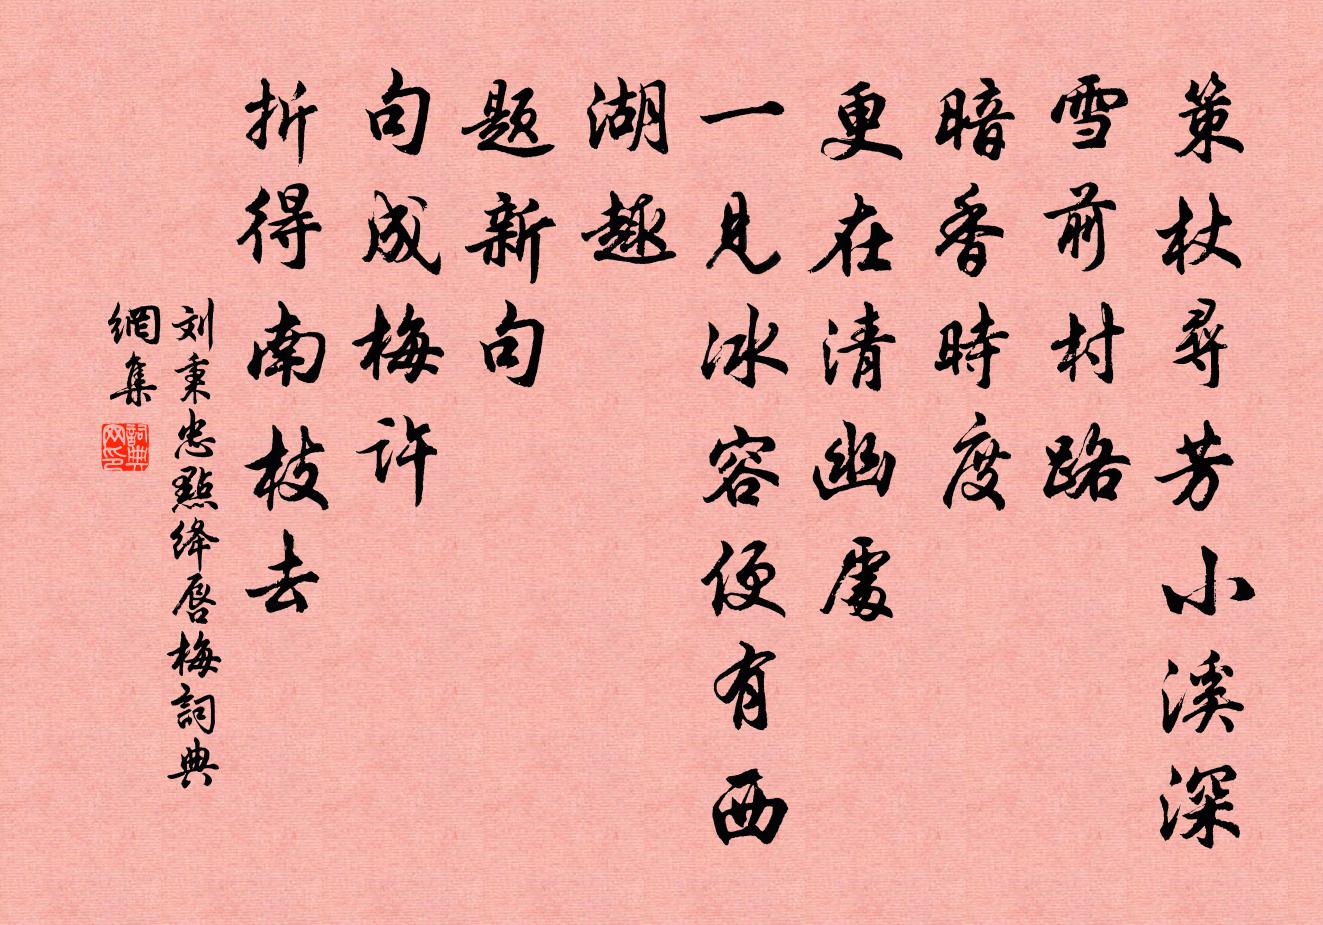 策杖尋芳小溪深
雪前村路
暗香時度
更在清幽處
一見冰容便有西
湖趣
題新句
句成梅許
折得南枝去
刘秉忠點絳唇梅詞典
網集
詞典
网印